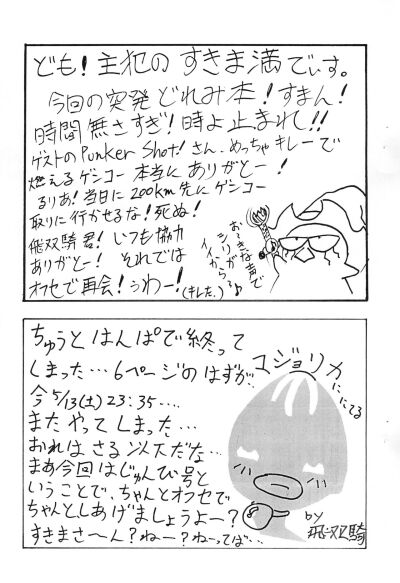 ども！主犯の すきま満でいす。
今回の突発どれみ本！すまん！
時間無さすぎ！時よ止まれ！！
ゲストのPunker Shot！さん、めっちゃキレーで
燃えるゲンコー本当にありがとー！
るりあ！当日に200km先にゲンコー
取りに行かせるな！死ぬ！
飛双騎君！いつも協力
ありがとー！ それでは
オフセで再会！うわー！（キレた。）
おーきな声で
シリが
イイからる♪
ちゅうとはんぱで終って
しまった…6ページのはずが…
今5/13(土)23:35…
またやってしまった…
おれはさる以下だな…
まあ今回はじゅんび号と
いうことで、ちゃんとオフセで
ちゃんとしあげましょうよー？
すきまさ〜ん？ねー？ねーってば…
マジョリカ
ににてる
by
飛双騎